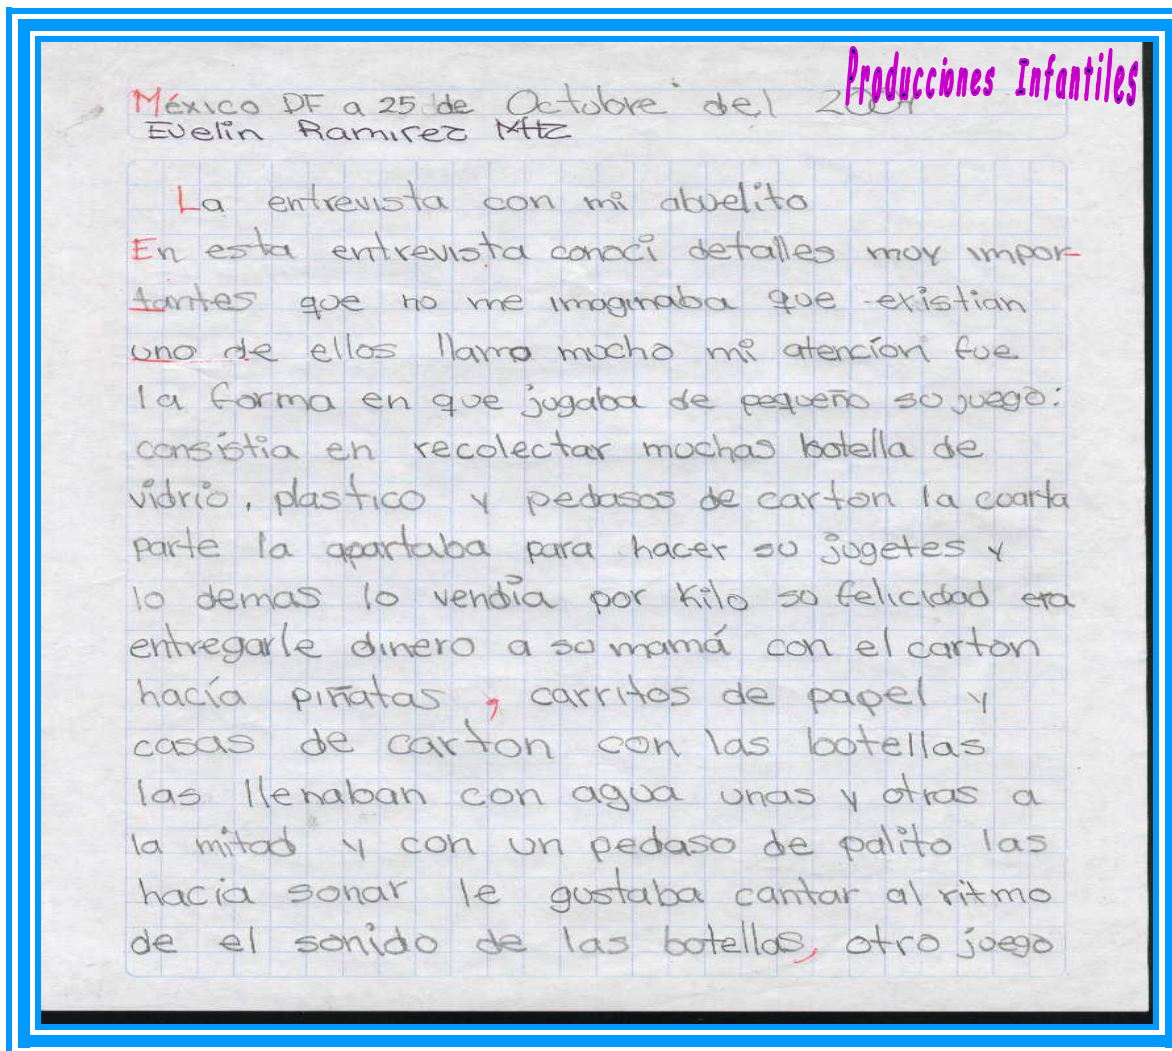 Producciones Infantiles
México DF a 25 de Octubre del
Evelin Ramirez Mtz
La entrevista con mi abuelito
En esta entrevista conocí detalles muy impor-
tantes que no me imaginaba que existian
uno de ellos llamo mucho mi atención fue
la forma en que jugaba de pequeño su juego:
consistia en recolectar muchas botella de
vidrio, plastico y pedasos de carton la cuarta
parte la apartaba para hacer su jugetes y
lo demas lo vendia por Kilo su felicidad era
entregarle dinero a su mamá con el carton
hacía piñatas, carritos de papel y
casas de carton con las botellas
las llenaban con agua unas y otras a
la mitad y con un pedaso de palito las
hacia sonar le gustaba cantar al ritmo
de el sonido de las botellas, otro juego